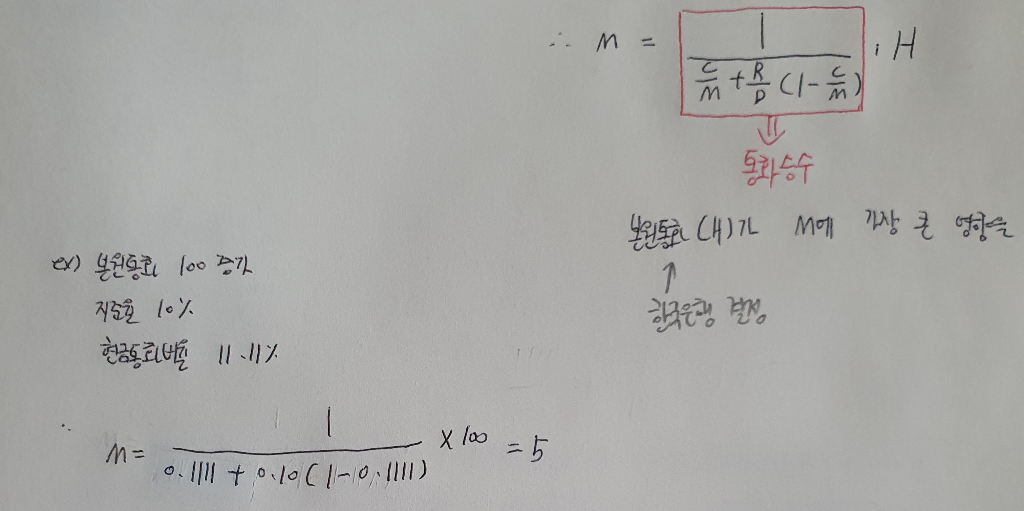 ∴ M = 1 / (C/M + R/D (1 - C/M)) · H
통화승수
본원통화 (H)가 M에 가장 큰 영향을
한국은행 결정
ex) 본원통화 100 증가
지준율 10%
현금통화비율 11.11%
∴ M = 1 / (0.1111 + 0.10(1-0.1111)) × 100 = 5